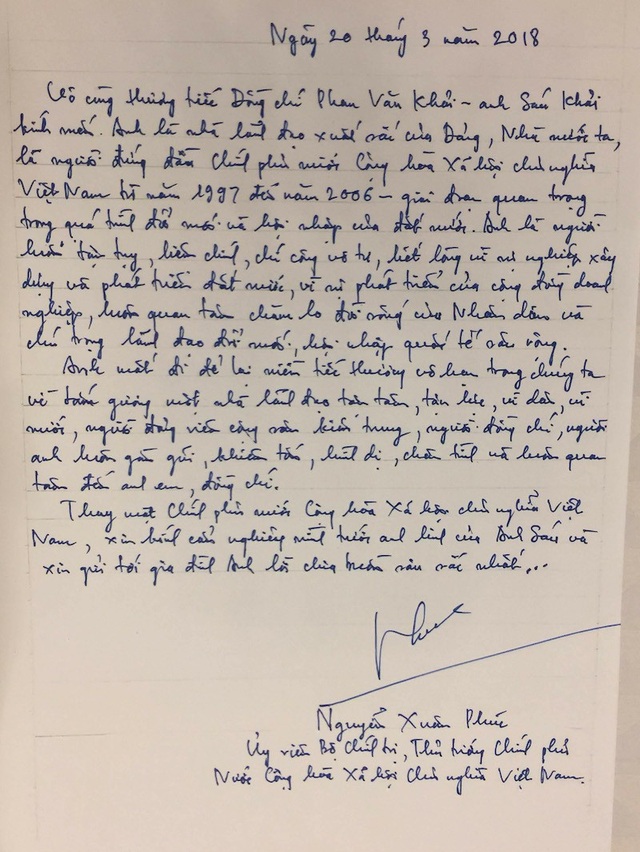 Ngày 20 tháng 3 năm 2018
Vô cùng thương tiếc Đồng chí Phan Văn Khải - anh Sáu Khải
kính mến. Anh là nhà lãnh đạo xuất sắc của Đảng, Nhà nước ta,
là người đứng đầu Chính phủ nước Cộng hòa Xã hội chủ nghĩa
Việt Nam từ năm 1997 đến năm 2006 - giai đoạn quan trọng
trong quá trình đổi mới và hội nhập của đất nước. Anh là người
luôn tận tụy, liêm chính, chí công vô tư, hết lòng vì sự nghiệp xây
dựng và phát triển đất nước, vì sự phát triển của cộng đồng doanh
nghiệp, luôn quan tâm chăm lo đời sống của Nhân dân và
chú trọng lãnh đạo đổi mới, hội nhập quốc tế sâu rộng.
Anh mất đi để lại niềm tiếc thương vô hạn trong chúng ta
về tấm gương một nhà lãnh đạo tận tâm, tận lực, vì dân, vì
nước, người đảng viên cộng sản kiên trung, người đồng chí, người
anh luôn gần gũi, khiêm tốn, bình dị, chân tình và luôn quan
tâm đến anh em, đồng chí.
Thay mặt Chính phủ nước Cộng hòa Xã hội chủ nghĩa Việt
Nam, xin kính cẩn nghiêng mình trước anh linh của Anh Sáu và
xin gửi tới gia đình Anh lời chia buồn sâu sắc nhất...
Nguyễn Xuân Phúc
Ủy viên Bộ Chính trị, Thủ tướng Chính phủ
Nước Cộng hòa Xã hội Chủ nghĩa Việt Nam.